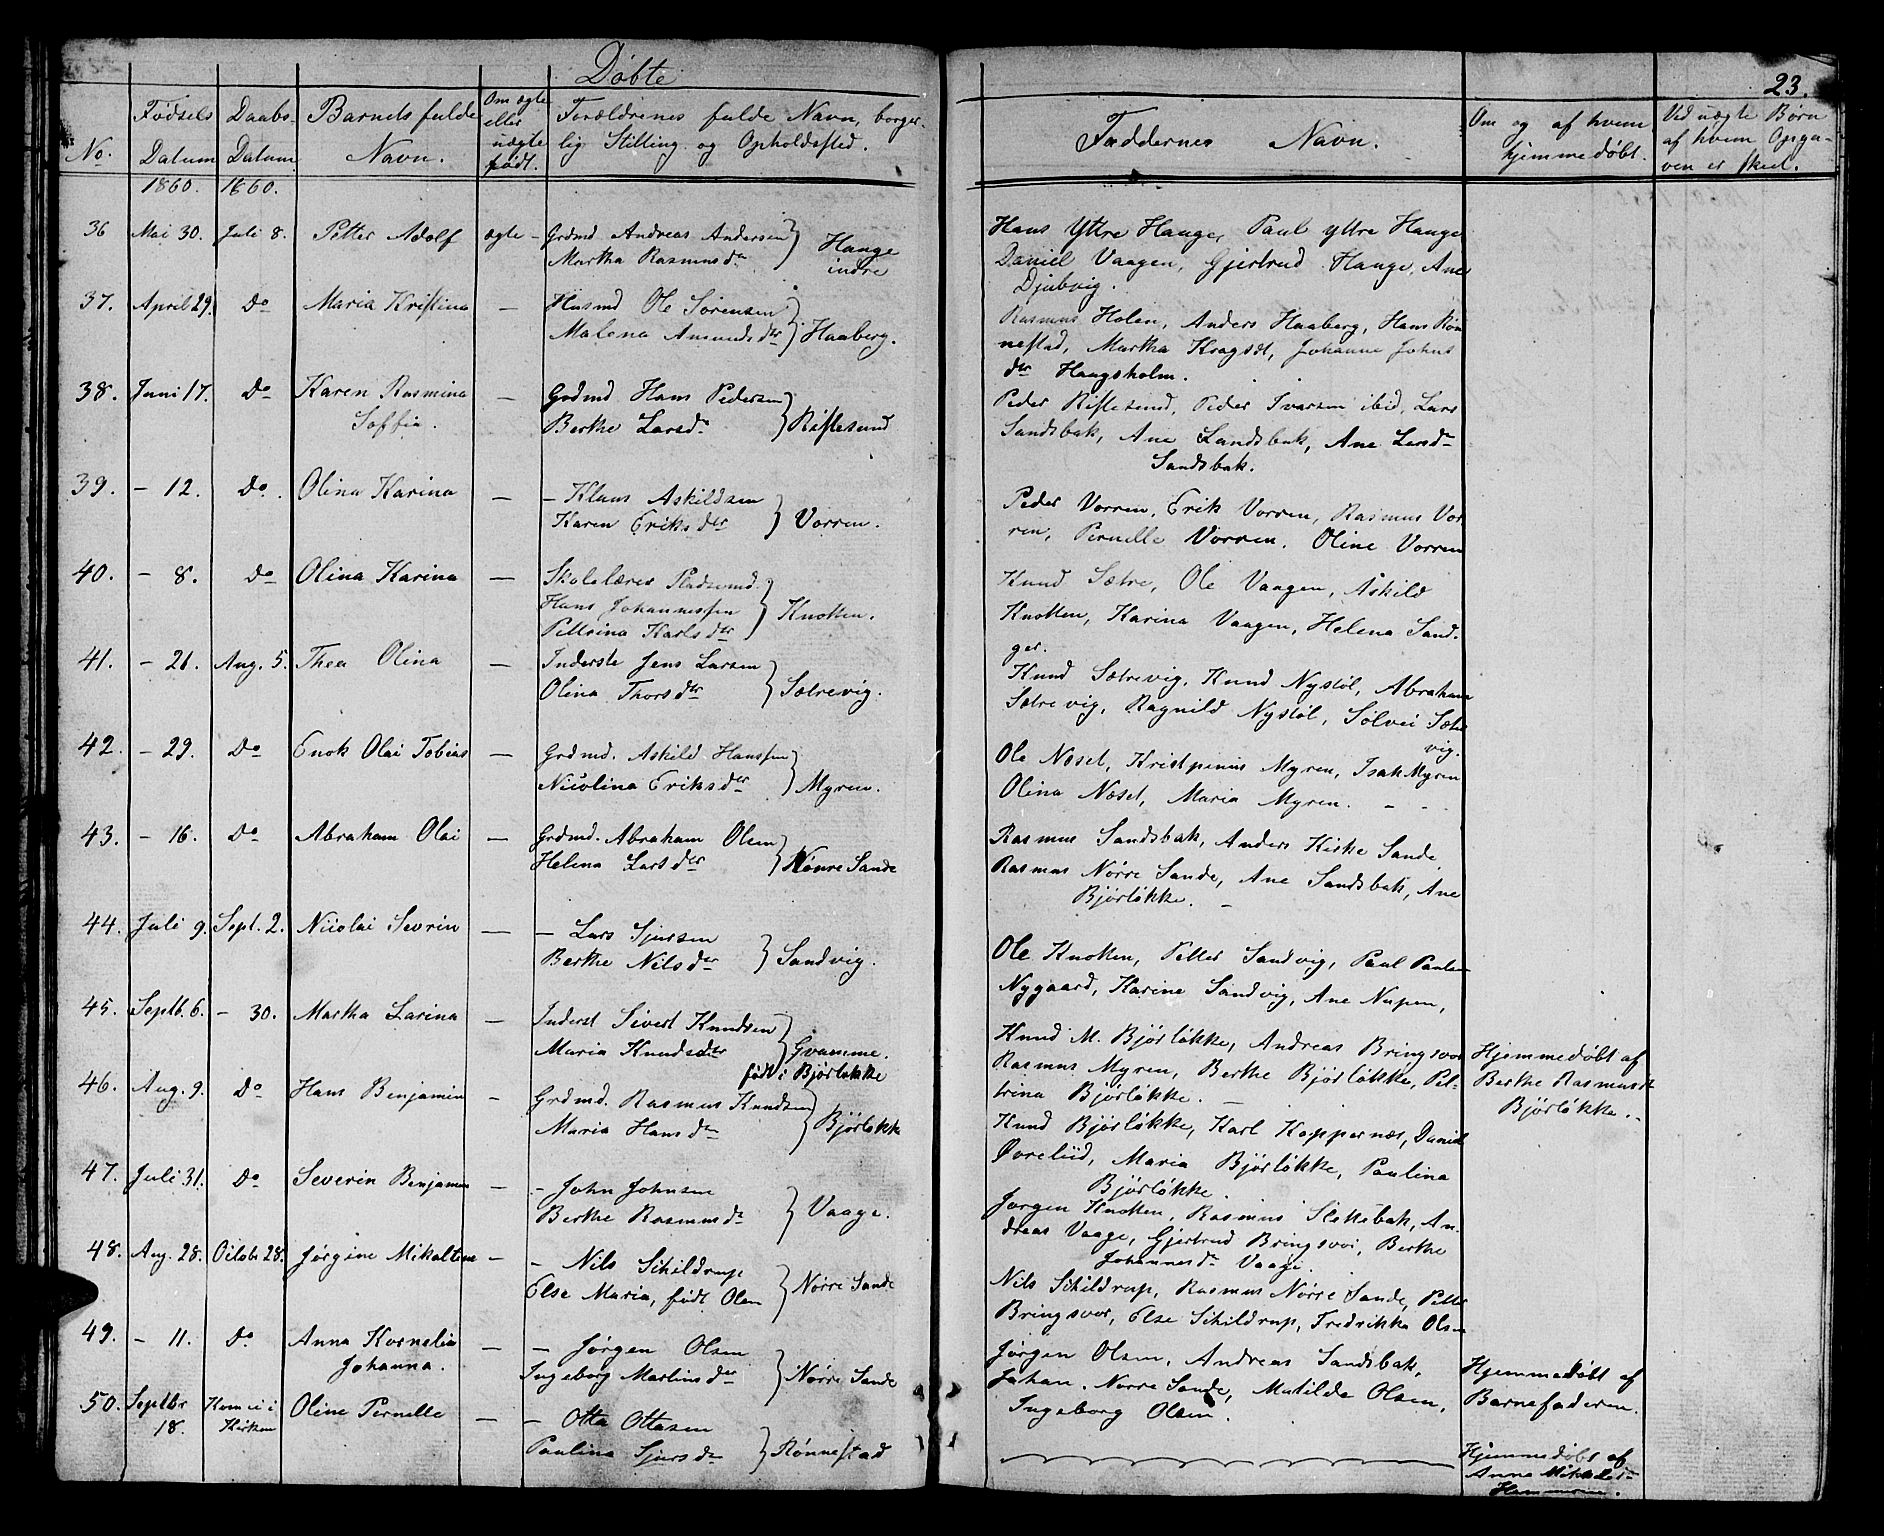 Døbte
23.
No.
Fødsels Datum
Daabs- Datum
Barnets fulde Navn.
Om ægte eller uægte født.
Forældrenes fulde Navn, borger-
lig Stilling og Opholdssted.
Faddernes Navn.
Om og af hvem hjemmedøbt.
Ved uægte Børn af hvem Opga-
ven er skeet.
1860. 1860.
36 Mai 30. Juli 8. Petter Adolf ægte - Grdmd Andreas Andersen
Martha Rasmusdr } Hauge indre
Hans Yttre Hauge, Paul yttre Hauge
Daniel Vaagen, Gjertrud Hauge, Ane
Djubvig.
37. April 29. Do Maria Kristina — Husmd Ole Sørensen
Malena Amundsdtr } Haaberg.
Rasmus Holen, Anders Haaberg, Hans Røn
nestad, Martha Kragsdt, Johanne Johns
dtr Haugsholm.
38. Juni 17. Do Karen Rasmina — Grdmd Hans Pedersen
Soffia. Berthe Larsdr } Riflesund
Peder Riflesund, Peder Ivarsen ibid, Lars
Sandsbak, Ane Sandsbak, Ane Larsdr
Sandsbak.
39. - 12. Do. Olina Karina — - Klaus Askildsen
Karen Eriksdtr } Vorren.
Peder Vorren, Erik Vorren, Rasmus Vor
ren, Pernille Vorren, Oline Vorren
40. - 8. Do Olina Karina — Skolelærer Pladsmd.
Hans Johannessen
Pettrina Karlsdtr } Knotten.
Knud Sætre, Ole Vaagen, Askild
Knotten, Karina Vaagen, Helena Sand-
ger.
41. - 21. Aug. 5. Thea Olina — Inderste Jens Larsen
Olina Thorsdtr } Sætrevig.
Knud Sætrevig, Knud Nystøl, Abraham
Sætrevig, Ragnild Nystøl, Sølvei Sætre
vig.
42. - 29. Do Enok Olai Tobias — Grdmd. Askild Hanssen
Nicolina Eriksdtr } Myren.
Ole Næset, Kristpinus Myren, Isak Myren
Olina Næset, Maria Myren. - -
43. - 16. Do Abraham Olai — Grdmd. Abraham Olsen
Helena Larsdtr } Nørre Sande
Rasmus Sandsbak, Anders Kirke Sande
Rasmus Nørre Sande, Ane Sandsbak, Ane
Bjørløkke. -
44. Juli 9. Sept. 2. Nicolai Sevrin — - Lars Sjursen
Berthe Nilsdtr } Sandvig.
Ole Knotten, Petter Sandvig, Paul Paulsen
Nygaard, Karine Sandvig, Ane Nupen,
45. Septb. 6. - 30. Martha Larina — Inderst Sivert Knudsen
Maria Knudsdtr } Gvamme.
født i Bjørløkke
Knud M. Bjørløkke, Andreas Bringsvor
Rasmus Myren, Berthe Bjørløkke, Pet-
trina Bjørløkke. -
Hjemmedøbt af
Berthe Rasmusdt
Bjørløkke.
46. Aug. 9. Do Hans Benjamin - Grdmd. Rasmus Knudsen
Maria Hansdr } Bjørløkk
Knud Bjørløkke, Karl Koppernæs, Daniel
Øvreliid, Maria Bjørløkke, Paulina
Bjørløkke.
47. Juli 31. Do Severin Benjamin — - John Johnsen
Berthe Rasmusdr } Vaage.
Jørgen Knotten, Rasmus Slettebak, An-
dreas Vaage, Gjertrud Bringsvor, Berthe
Johannesdr Vaage.
48. Aug. 28. Octobr 28. Jørgine Mikaltine — - Nils Schildrup
Else Maria, født Olsen } Nørre Sande
Nils Schildrup, Rasmus Nørre Sande, Petter
Bringsvor, Else Schildrup, Fredrikka Olsen
49. - 11. Do Anna Kornelia — - Jørgen Olsen
Johanna. Ingeborg Martinsdtr } Nørre Sande
Jørgen Olsen, Andreas Sandsbak,
Johan Nørre Sande, Matilde Olsen,
Ingeborg Olsen.
Hjemmedøbt af
Barnefaderen.
50. Septbr 18. Kom ei i Kirken Oline Pernelle — - Otto Ottosen
Paulina Sjursdr } Rønnestad
Hjemmedøbt af
Anna Mikkelsdr